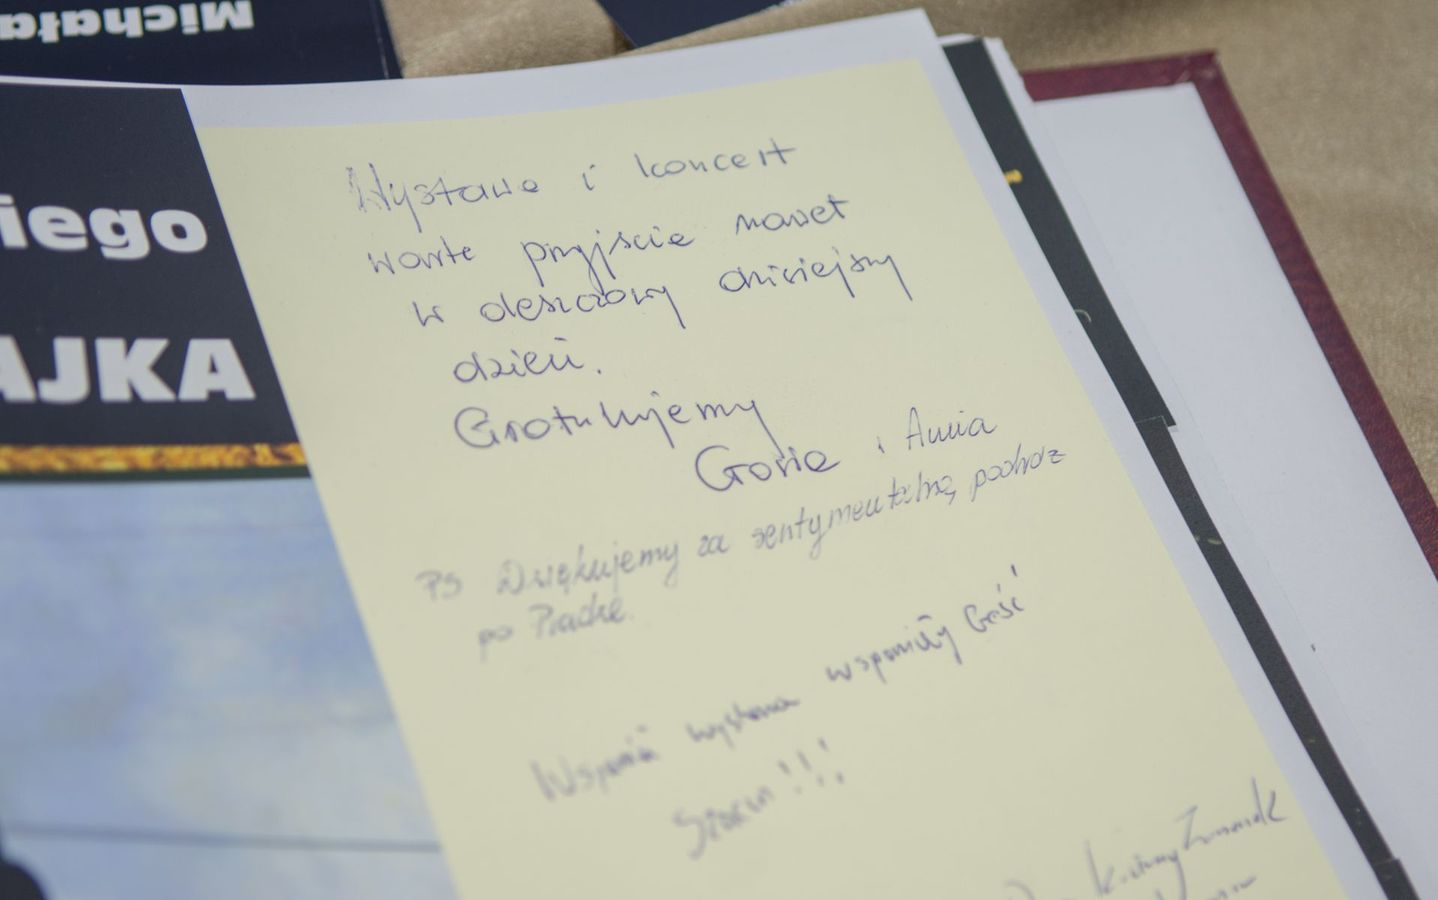 Michała
iego
AJKA
Wystawa i koncert
warte przyjścia nawet
w deszczowy dzisiejszy
dzień.
Gratulujemy
Gosia i Ania
PS Dziękujemy za sentymentalną podróż
po Pradze.
Wspaniała wystawa wspaniały Gość
!!!